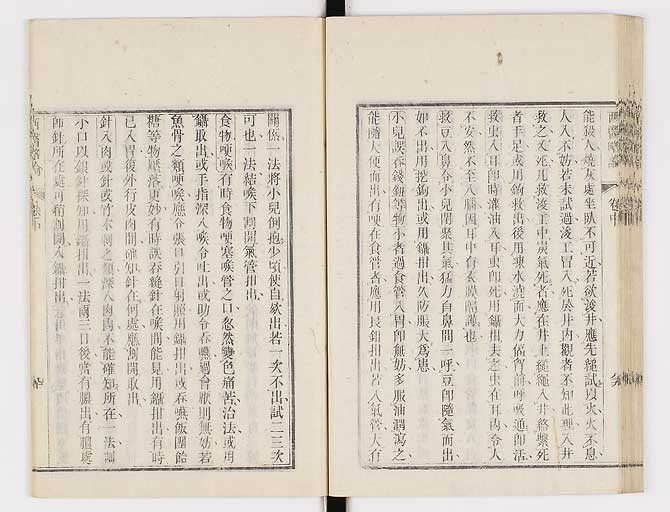 能殺人燒灰處坐臥不可近若欲浚井應先縋試以火火不息
人入不妨若未試過浚工冒入死於井內觀者不知此理入井
救之又死用救浚工中炭氣死者應在井上縋繩入井煞繫死
者手足或用鈎救出後用凍水澆面大力
救虫入耳卽時灌油入耳虫卽死用鑷拑出夫之虫在耳內令人
不安然不至入腦因耳中有衣膜隔護也
救豆入鼻令小兒閉聚其氣猛力自鼻間一呼豆卽隨氣而出
如不出用捲鈎出或用鑷拑出久防脹大為患
小兒誤吞錢鈕等物小者過食管入胃卽無妨多服油瀉瀉之
能隨大便而出有哽在食管者應用長鉗拑出若入氣管大有
關係一法將小兒倒抱少頃使自欬出若一次不出試二三次
可也一法結喉下割開氣管拑出
食物哽喉有時食物哽塞喉管之口忽然變色痛苦治法或用
鑷取出或手指深入喉令吐出或助令吞嚥過會厭則無妨若
魚骨之類哽喉應令張口引日射照用鑷拑出或吞嚥飯團飴
糖等物壓落更妙有時誤吞縫針在喉間能見用鑷拑出有時
已入胃後外行皮肉間確知針在何處應割開取出
針入肉或針或竹木刺之類入肉內不能確知所在一法割
小口以銀針探知用鑷拑出一法兩三日後當有膿出有膿處
卽針所在處可稍割開入鑷拑出
西醫略論
卷中